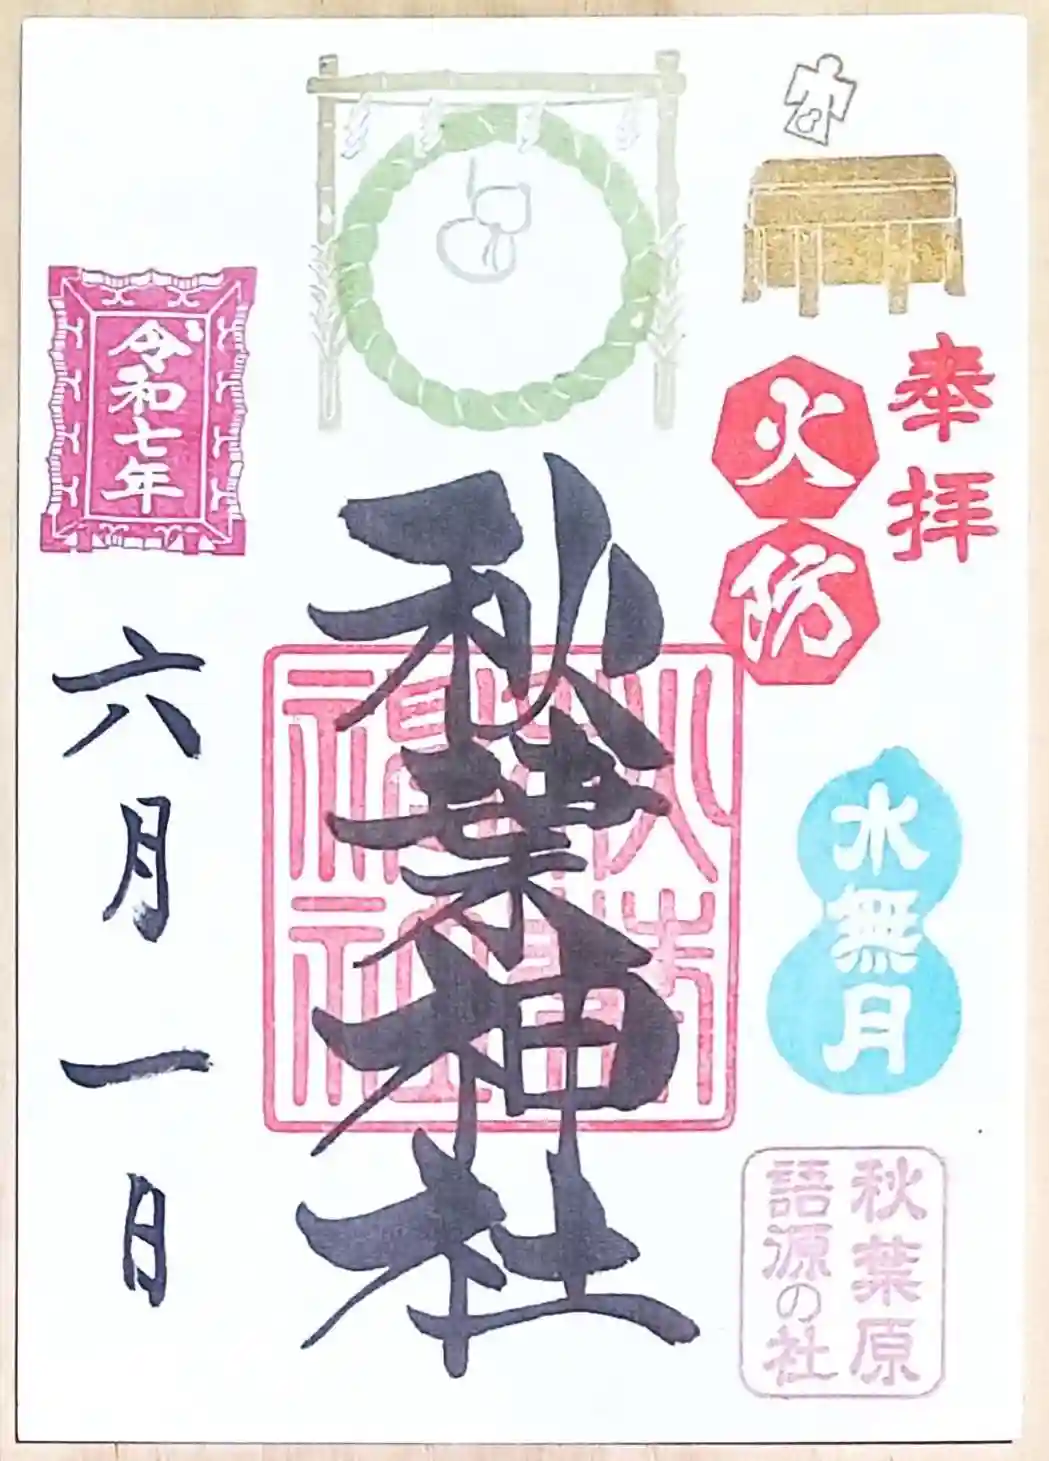 奉拝
火防
水無月
秋葉原
語源の社
秋葉神社
令和七年
六月一日